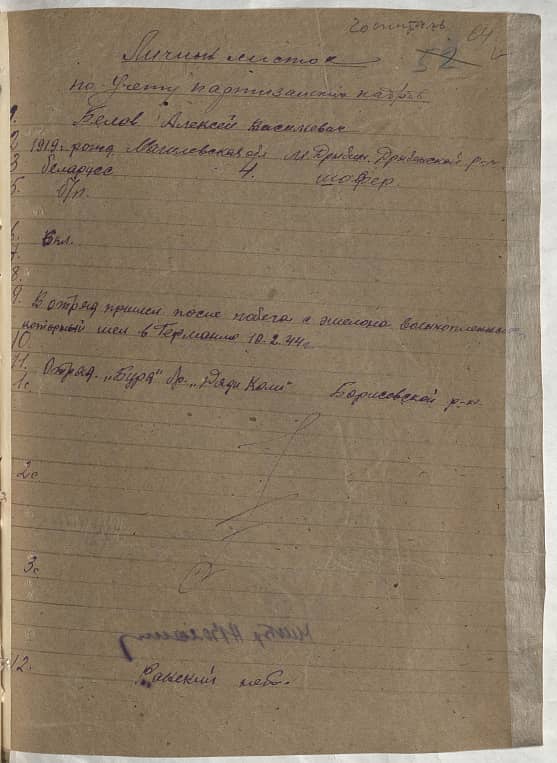 Госпиталь
64
52
Личный листок
по учету партизанских кадров
1. Белов Алексей Васильевич
2. 1919 рожд. Могилевская обл. м. Дрибин, Дрибенской р-н.
3. беларусс 4. шофер.
5. б/п.
6. 6 кл.
7.
8.
9. В отряд пришел после побега с эшелона военнопленных,
который шел в Германию 10.2.44 г
10.
11. Отряд „Буря" бр. „Дяди Коли" Борисовской р-н.
1.
2.
3.
12. Ранений нет.